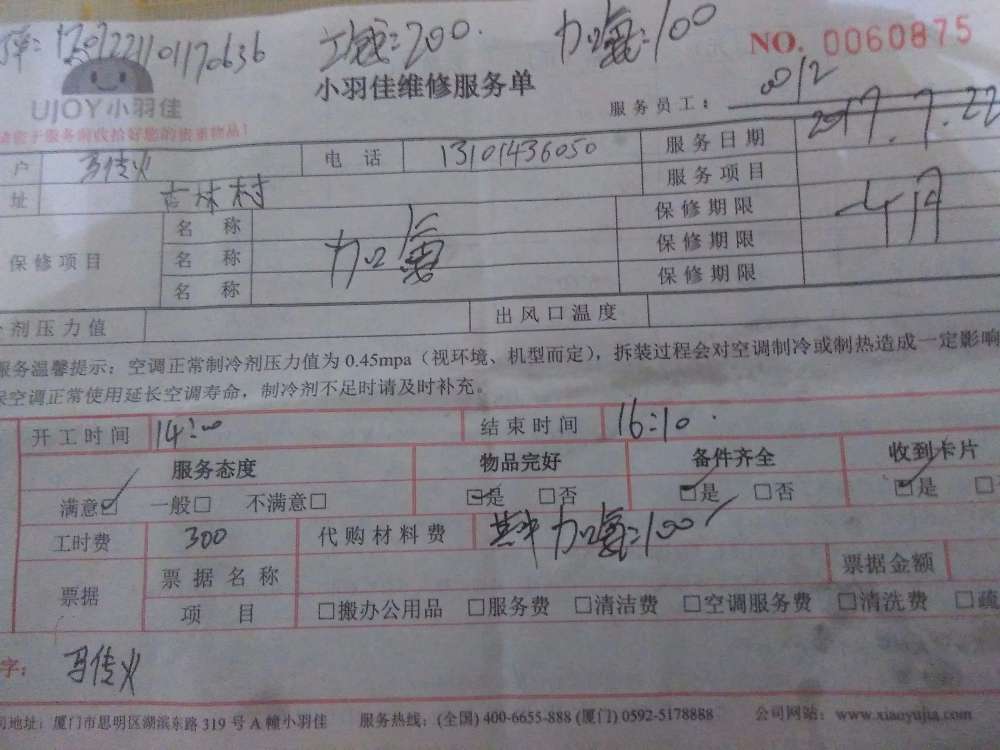 单：170722110117636 工时费：200. 加氨：100 NO. 0060875
UJOY小羽佳 小羽佳维修服务单 服务员工：0012
请您于服务前收拾好您的贵重物品！
户 马传火 电话 13101436050 服务日期 2017.7.22
址 吉林村 服务项目
保修项目 名称 保修期限
名称 加 保修期限 月
名称 保修期限
剂压力值 出风口温度
服务温馨提示：空调正常制冷剂压力值为0.45mpa（视环境、机型而定），拆装过程会对空调制冷或制热造成一定影响
保空调正常使用延长空调寿命，制冷剂不足时请及时补充。
开工时间 14:00 结束时间 16:10.
服务态度 物品完好 备件齐全 收到卡片
满意☑ 一般□ 不满意□ ☑是 □否 ☑是 □否 ☑是 □
工时费 300 代购材料费 其中加氨：100
票据 票据名称 票据金额
项目 □搬办公用品 □服务费 □清洁费 □空调服务费 □清洗费 □疏
字： 马传火
司地址：厦门市思明区湖滨东路319号A幢小羽佳 服务热线：(全国) 400-6655-888 (厦门) 0592-5178888 公司网站：www.xiaoyujia.com